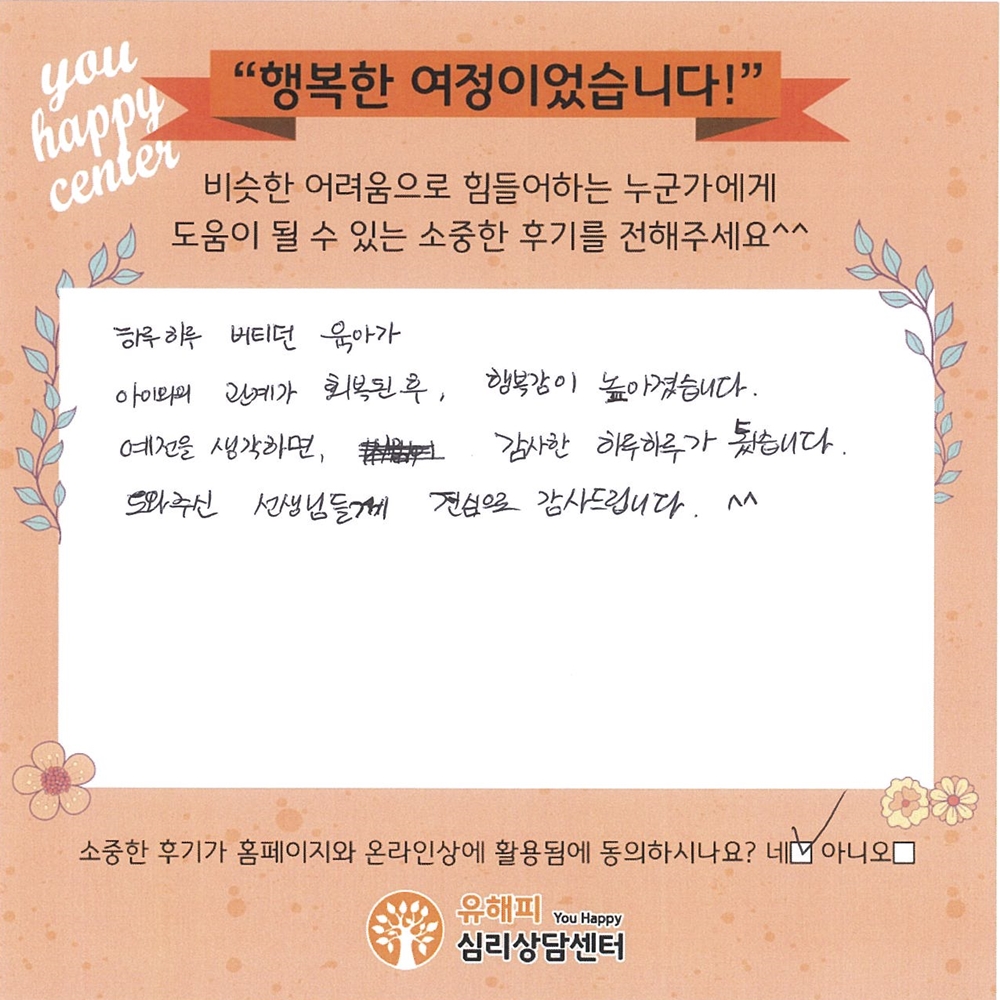 you
happy
center
“행복한 여정이었습니다!”
비슷한 어려움으로 힘들어하는 누군가에게
도움이 될 수 있는 소중한 후기를 전해주세요^^
하루하루 버티던 육아가
아이와의 관계가 회복된 후, 행복감이 높아졌습니다.
예전을 생각하면, 감사한 하루하루가 됐습니다.
도와주신 선생님들께 진심으로 감사드립니다. ^^
소중한 후기가 홈페이지와 온라인상에 활용됨에 동의하시나요? 네☑ 아니오☐
유해피 You Happy
심리상담센터